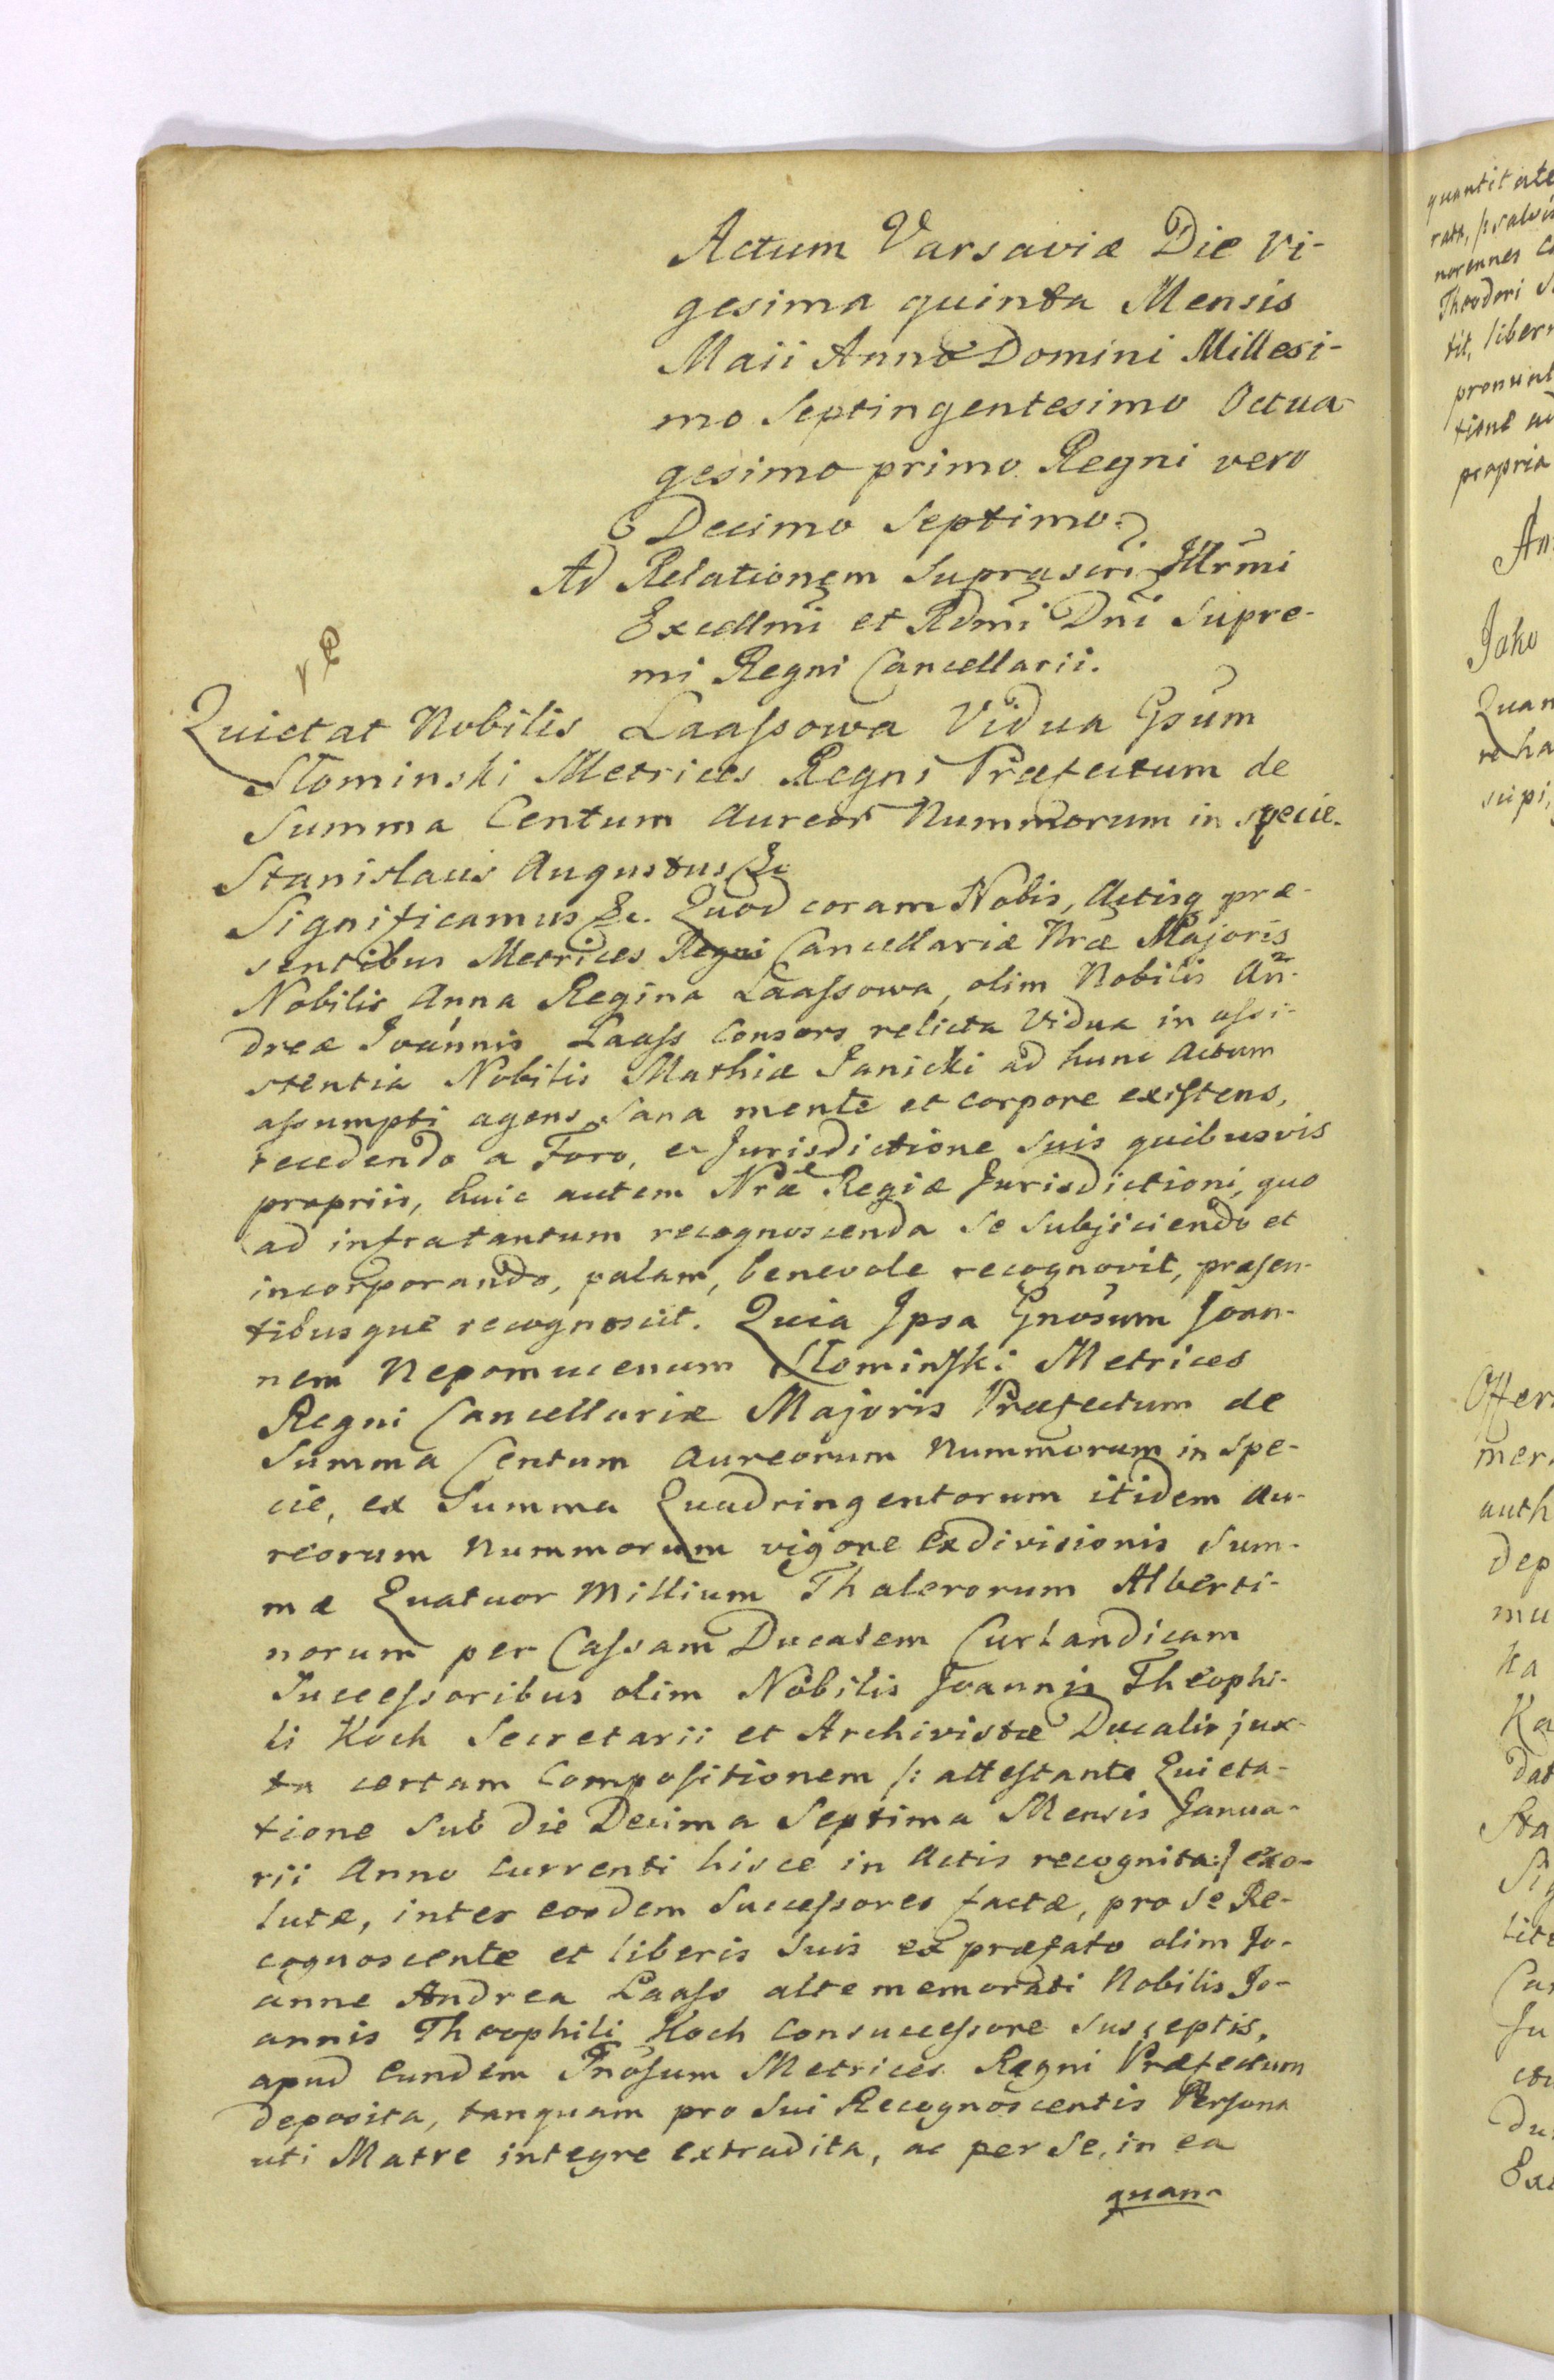 Actum Varsaviæ Die Vi-
gesima quinta Mensis
Maii Anno Domini Millesi-
mo Septingentesimo Octua-
gesimo primo Regni vero
Decimo Septimo.
Ad Relationem Suprascri Illrmi
Excellmi et Rdmi Dni Supre-
mi Regni Cancellarii.
Quietat Nobilis Laaſsowa Vidua Gsum
Słominski Metrices Regni Præfectum de
Summa Centum Aureor Nummorum in specie.
Stanislaus Augustus &c
Significamus &c. Quod coram Nobis, Actisq præ-
sentibus Metrices Regni Cancellariæ Nræ Majoris
Nobilis Anna Regina Laaſsowa, olim Nobilis An-
dreæ Joannis Laaſs Consors relicta Vidua in aſsi-
stentia Nobilis Mathiæ Janicki ad hunc Actum
aſsumpti agens, Sana mente et corpore exiſtens,
recedendo a Foro, et Jurisdictione suis quibusvis
propriis, huic autem Nræ Regiæ Jurisdictioni, quo
ad infratantum recognoscenda se Subjiciendo et
incorporando, palam, benevole recognovit, præsen-
tibusque recognoscit. Quia Ipsa Gnosum Joan-
nem Nepomucenum Słominſki Metrices
Regni Cancellariæ Majoris Præfectum de
Summa Centum Aureorum Nummorum in Spe-
cie, ex Summa Quadringentorum itidem Au-
reorum Nummorum vigore exdivisionis Sum-
mæ Quatuor Millium Thalerorum Alberti-
norum per Caſsam Ducalem Curlandicam
Succeſsoribus olim Nobilis Joannis Theophi-
li Koch Secretarii et Archivistæ Ducalis jux-
ta certam Compoſitionem /: atteſtante Quieta-
tione sub die Decima Septima Mensis Janua-
rii Anno Currenti hisce in Actis recognita :/ exo-
lutæ, inter eosdem Succeſsores factæ, pro se Re-
cognoscente et liberis suis ex præfato olim Jo-
anne Andrea Laaſs alte memorati Nobilis Jo-
annis Theophili Koch Consucceſsore susceptis,
apud eundem Gnoſum Metrices Regni Præfectum
deposita, tanquam pro sui Recognoscentis Perſona
uti Matre integre extradita, ac per se, in ea
quan-
quantitate
Theodori
tit, liber
pronunt
propria
An
Jako
Quan
re ha
Offer
mer
auth
dep
mu
Ka
dat
Sta